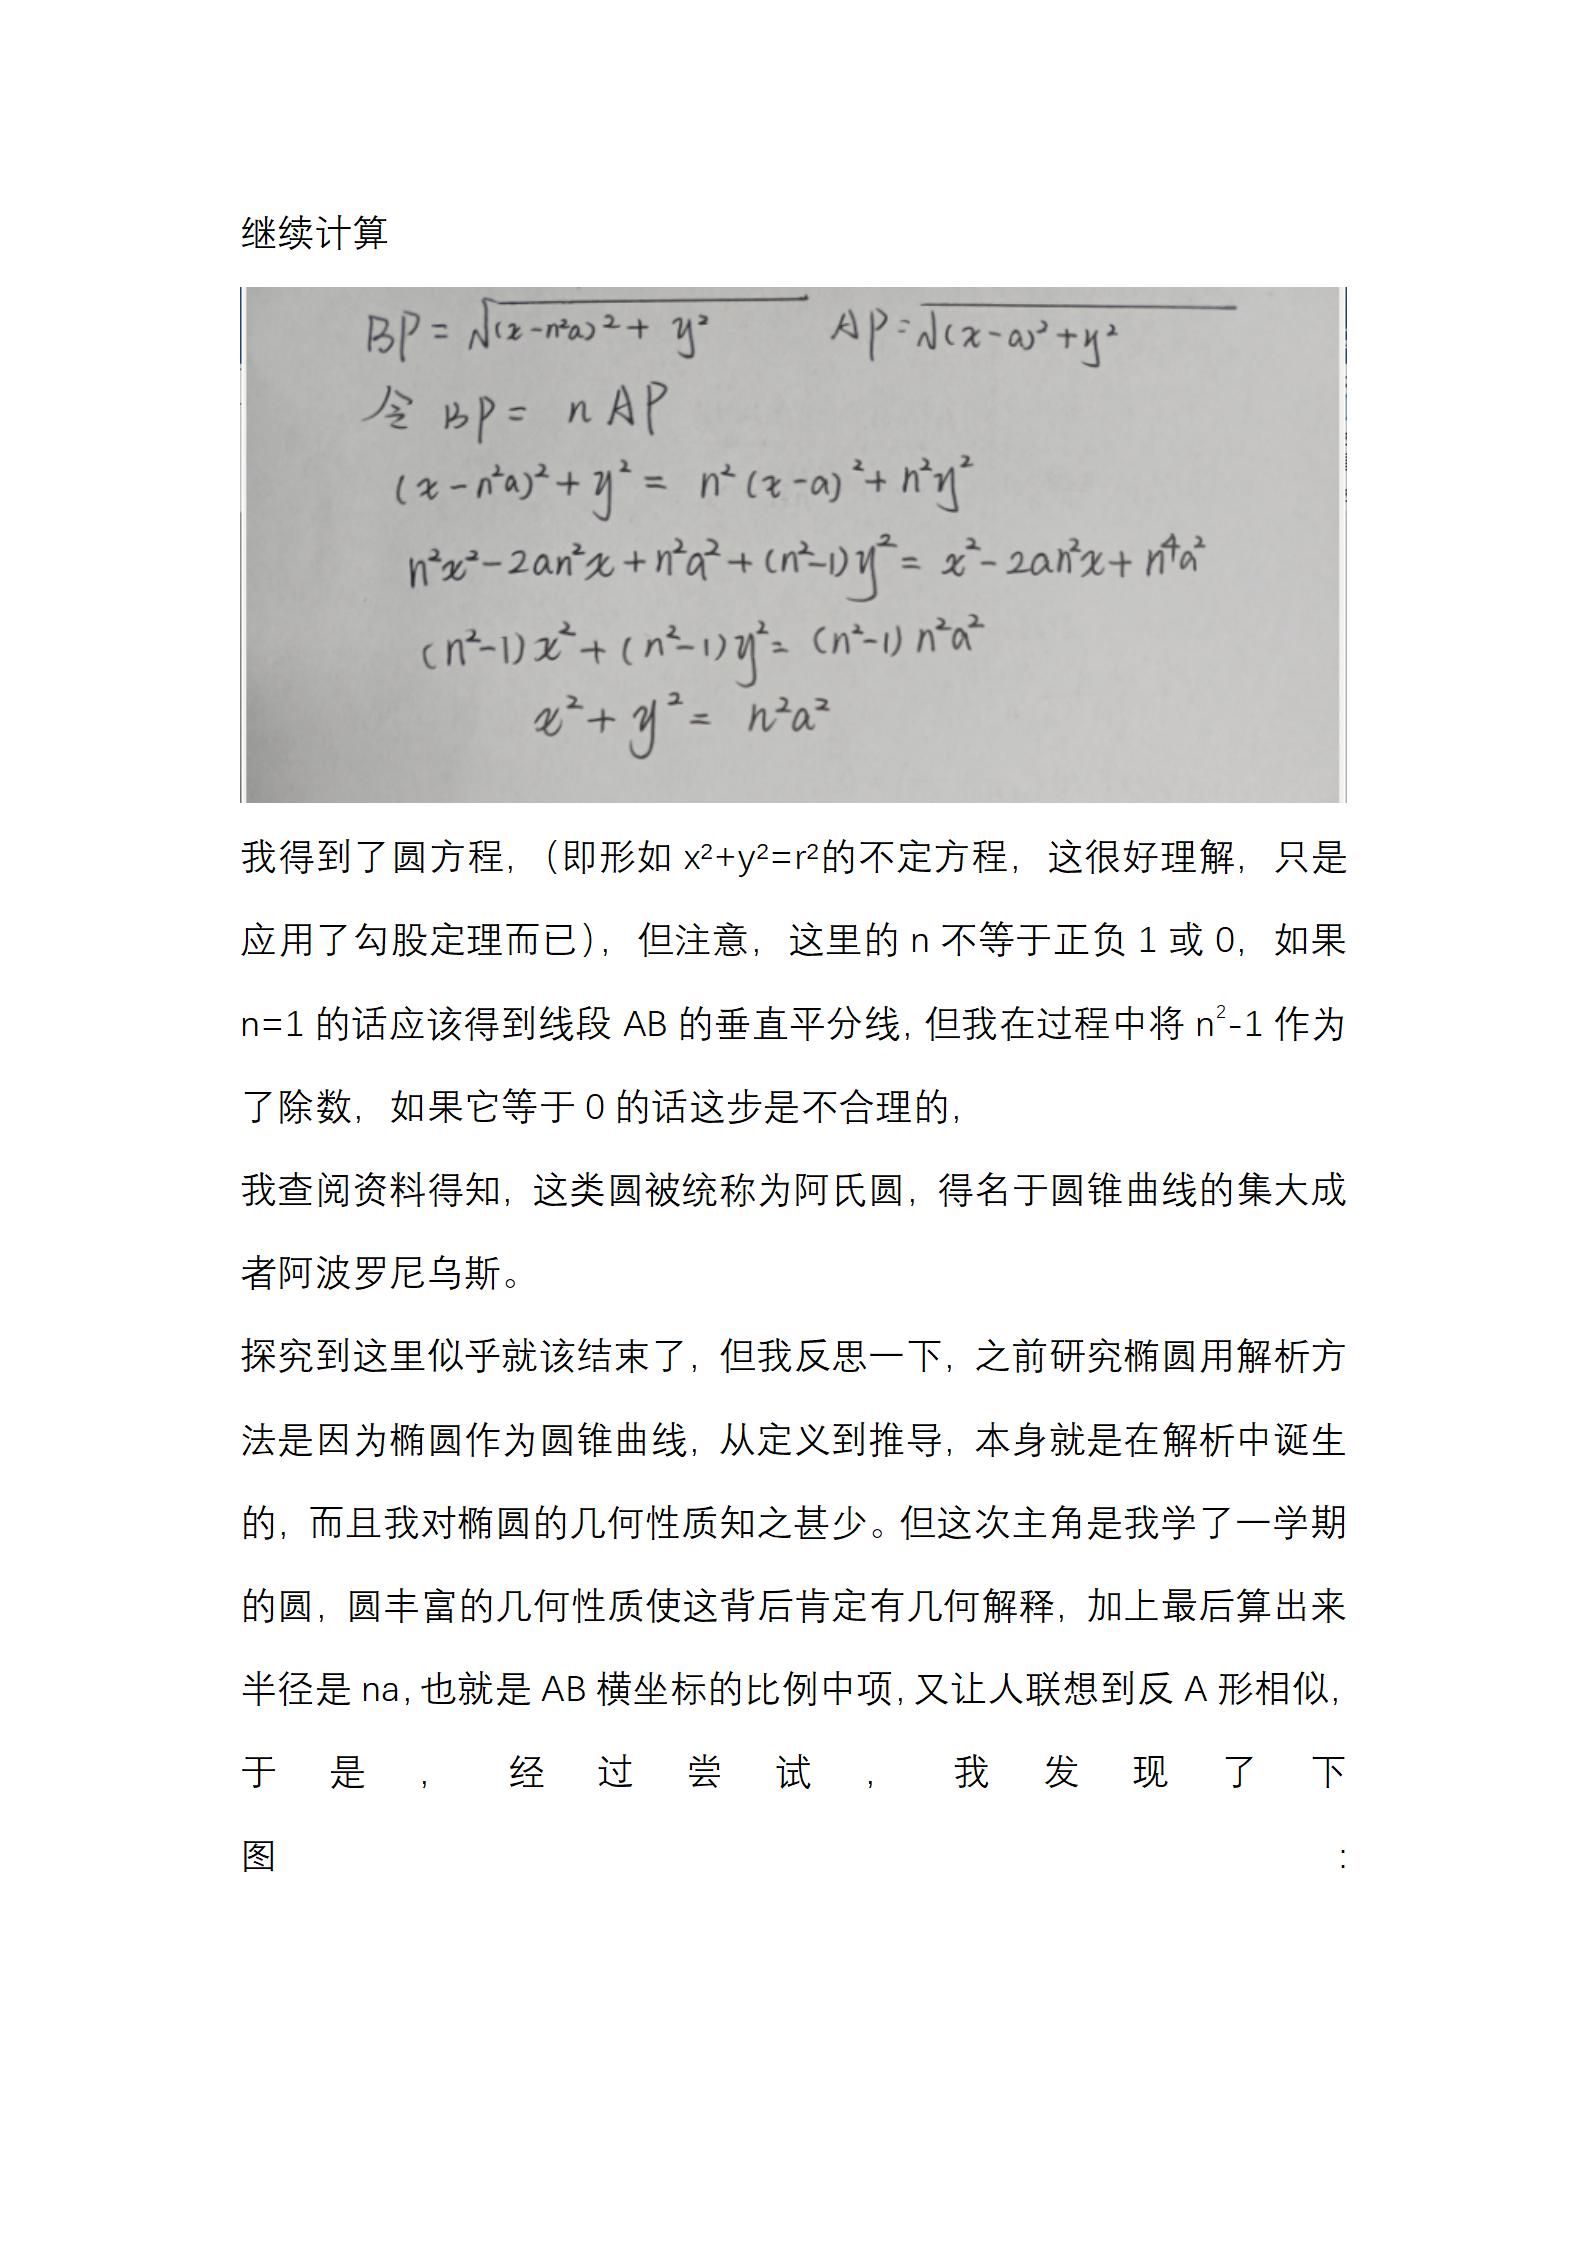 继续计算
BP = √(x-n²a)² + y² AP = √(x-a)²+y²
令 BP = n AP
(x-n²a)²+y² = n²(x-a)²+n²y²
n²x²-2an²x+n²a²+(n²-1)y² = x²-2an²x+n⁴a²
(n²-1)x²+(n²-1)y² = (n²-1)n²a²
x²+y² = n²a²
我得到了圆方程，（即形如 x²+y²=r²的不定方程，这很好理解，只是
应用了勾股定理而已），但注意，这里的 n 不等于正负 1 或 0，如果
n=1 的话应该得到线段 AB 的垂直平分线，但我在过程中将 n²-1 作为
了除数，如果它等于 0 的话这步是不合理的，
我查阅资料得知，这类圆被统称为阿氏圆，得名于圆锥曲线的集大成
者阿波罗尼乌斯。
探究到这里似乎就该结束了，但我反思一下，之前研究椭圆用解析方
法是因为椭圆作为圆锥曲线，从定义到推导，本身就是在解析中诞生
的，而且我对椭圆的几何性质知之甚少。但这次主角是我学了一学期
的圆，圆丰富的几何性质使这背后肯定有几何解释，加上最后算出来
半径是 na，也就是 AB 横坐标的比例中项，又让人联想到反 A 形相似，
于是，经过尝试，我发现了下
图：